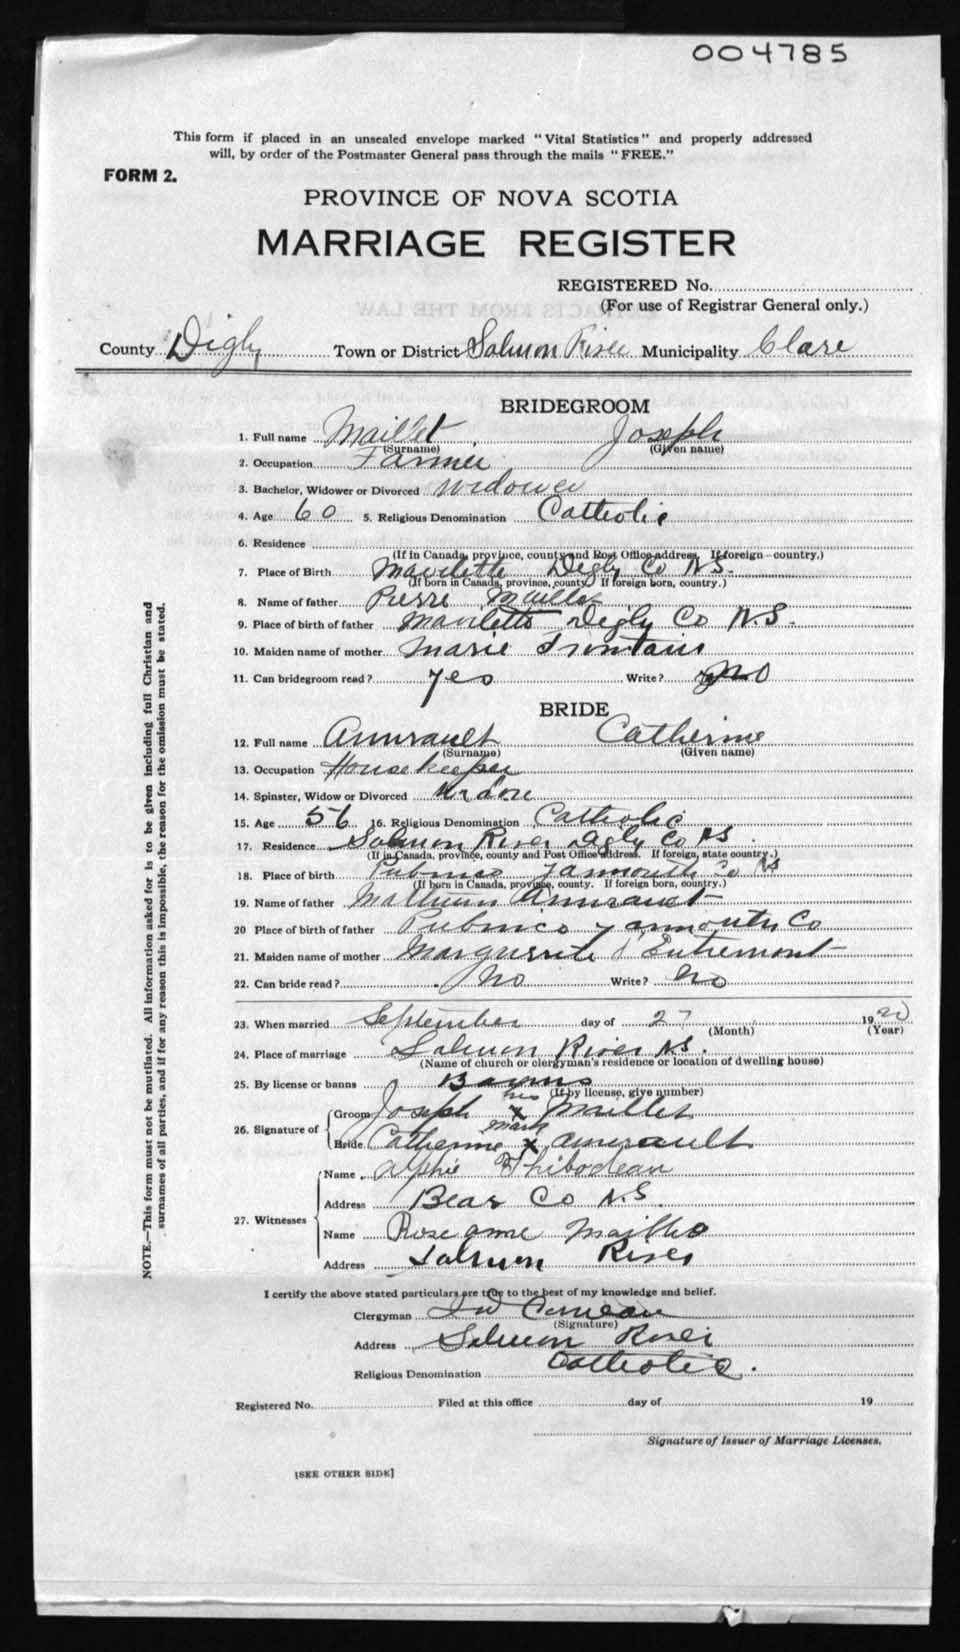 004785
This form if placed in an unsealed envelope marked "Vital Statistics" and properly addressed
will, by order of the Postmaster General pass through the mails "FREE."
FORM 2.
PROVINCE OF NOVA SCOTIA
MARRIAGE REGISTER
REGISTERED No.
(For use of Registrar General only.)
County Digby Town or District Salmon River Municipality Clare
BRIDEGROOM
1. Full name Maillet Joseph
(Surname) (Given name)
2. Occupation Farmer
3. Bachelor, Widower or Divorced widower
4. Age 60 5. Religious Denomination Catholic
6. Residence
(If in Canada, province, county and Post Office address. If foreign—country.)
7. Place of Birth Mavilette Digby Co N.S.
(If born in Canada, province, county. If foreign born, country.)
8. Name of father Pierre Maillet
9. Place of birth of father Mavilette Digby Co N.S.
10. Maiden name of mother Marie
11. Can bridegroom read? yes Write? No
BRIDE
12. Full name Amirault Catherine
(Surname) (Given name)
13. Occupation Housekeeper
14. Spinster, Widow or Divorced
15. Age 56 16. Religious Denomination Catholic
17. Residence Salmon River Digby Co NS
(If in Canada, province, county and Post Office address. If foreign, state country.)
18. Place of birth Pubnico Yarmouth Co NS
(If born in Canada, province, county. If foreign born, country.)
19. Name of father Amirault
20 Place of birth of father Pubnico Yarmouth Co
21. Maiden name of mother Marguerite d'Entremont
22. Can bride read? No Write? No
23. When married September day of 27 1920
(Month) (Year)
24. Place of marriage Salmon River NS.
(Name of church or clergyman's residence or location of dwelling house)
25. By license or banns Banns
(If by license, give number)
his
Groom Joseph x Maillet
26. Signature of mark
Bride Catherine x Amirault
Name Alphie Thibodeau
Address Bear Co N.S
27. Witnesses
Name Rose anne
Address Salmon River
I certify the above stated particulars are true to the best of my knowledge and belief.
Clergyman Comeau
(Signature)
Address Salmon River
Religious Denomination Catholic.
Registered No. Filed at this office day of 19
Signature of Issuer of Marriage Licenses.
[SEE OTHER SIDE]
NOTE.—This form must not be mutilated. All information asked for is to be given including full Christian and
surnames of all parties, and if for any reason this is impossible, the reason for the omission must be stated.